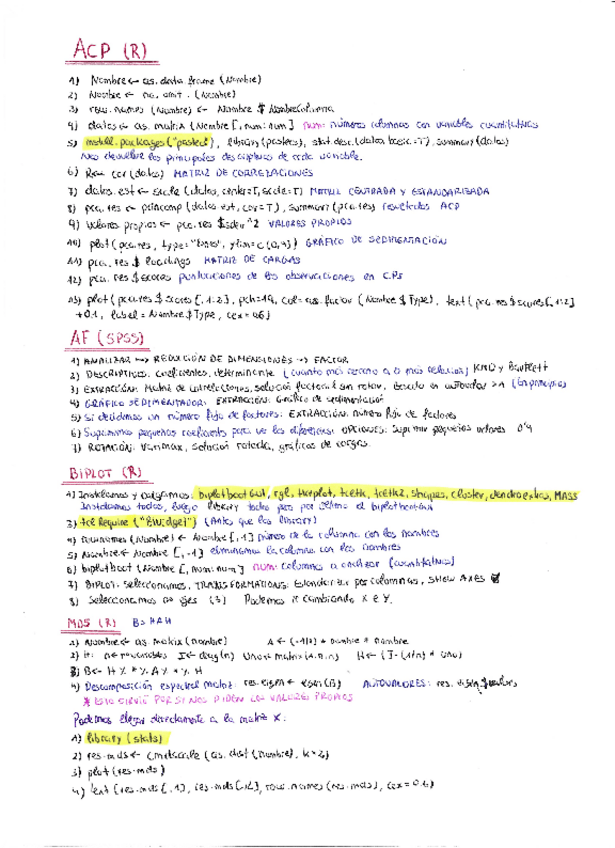 ACP (R)
1) Nombre ← as.data.frame (Nombre)
2) Nombre ← na.omit. (Nombre)
3) row.names (Nombre) ← Nombre $ NombreColumna
4) datos ← as.matrix (Nombre [, num:num] num: números columnas con variables cuantitativas
5) install.packages ("pastecs"), library (pastecs), stat.desc (datos, basic=T), summary (datos)
Nos devuelve los principales descriptivos de cada variable.
6) R ← cor (datos) MATRIZ DE CORRELACIONES
7) datos.est ← scale (datos, center=T, scale=T) MATRIZ CENTRADA Y ESTANDARIZADA
8) pca.res ← princomp (datos.est, cor=T), summary (pca.res) resultados ACP
9) valores propios ← pca.res $sdev^2 VALORES PROPIOS
10) plot (pca.res, type="lines", ylim=c(0,4)) GRÁFICO DE SEDIMENTACIÓN
11) pca.res $ loadings MATRIZ DE CARGAS
12) pca.res $ scores puntuaciones de las observaciones en CPs
13) plot (pca.res $ scores [,1:2], pch=19, col=as.factor (Nombre $ Type), text (pca.res $ scores [,1:2]
+0.1, label=Nombre $ Type, cex=0.6)
AF (SPSS)
1) ANALIZAR → REDUCIÓN DE DIMENSIONES → FACTOR
2) DESCRIPTIVOS: Coeficientes, determinante (cuanto más cercano a 0 más relación) KMO y Bartlett
3) EXTRACCIÓN: Matriz de correlaciones, solución factorial sin rotar, basado en autovalor >1 (En principio)
4) GRÁFICO SEDIMENTADOR: EXTRACCIÓN: Gráfico de sedimentación
5) Si decidimos un número fijo de factores: EXTRACCIÓN: número fijo de factores
6) Suprimimos pequeños coeficientes para ver las diferencias: OPCIONES: Suprimir pequeños valores 0'4
7) ROTACIÓN: Varimax, solución rotada, gráficos de cargas.
BIPLOT (R)
1) Instalamos y cargamos: biplotbootGUI, rgl, tkrplot, tcltk, tcltk2, shapes, cluster, dendroextras, MASS
Instalamos todos, luego library todos pero por último el biplotbootGUI
3) tclRequire ("BWidget") (Antes que las library)
4) rownames (Nombre) ← Nombre [,1] número de la columna con los nombres
5) Nombre ← Nombre [,-1] eliminamos la columna con los nombres
6) biplotboot (Nombre [, num:num] num: columnas a analizar (cuantitativas)
7) BIPLOT: seleccionamos, TRANSFORMATIONS: Estandarizar por columnas, SHOW AXES
8) Seleccionamos nº ejes (3) Podemos ir cambiando X e Y.
MDS (R) B=HAH
1) Nombre ← as.matrix (nombre) A ← (-1/2) * nombre * nombre
3) B ← H %*% A %*% H
4) Descomposición espectral matriz: res.eigen ← eigen (B) AUTOVALORES: res.eigen $values
* ESTO SIRVE POR SI NOS PIDEN LOS VALORES PROPIOS
Podemos llegar directamente a la matriz X:
1) library (stats)
2) res.mds ← cmdscale (as.dist (nombre), k=2)
3) plot (res.mds)
4) text (res.mds [,1], res.mds [,2], row.names (res.mds), cex=0.6)